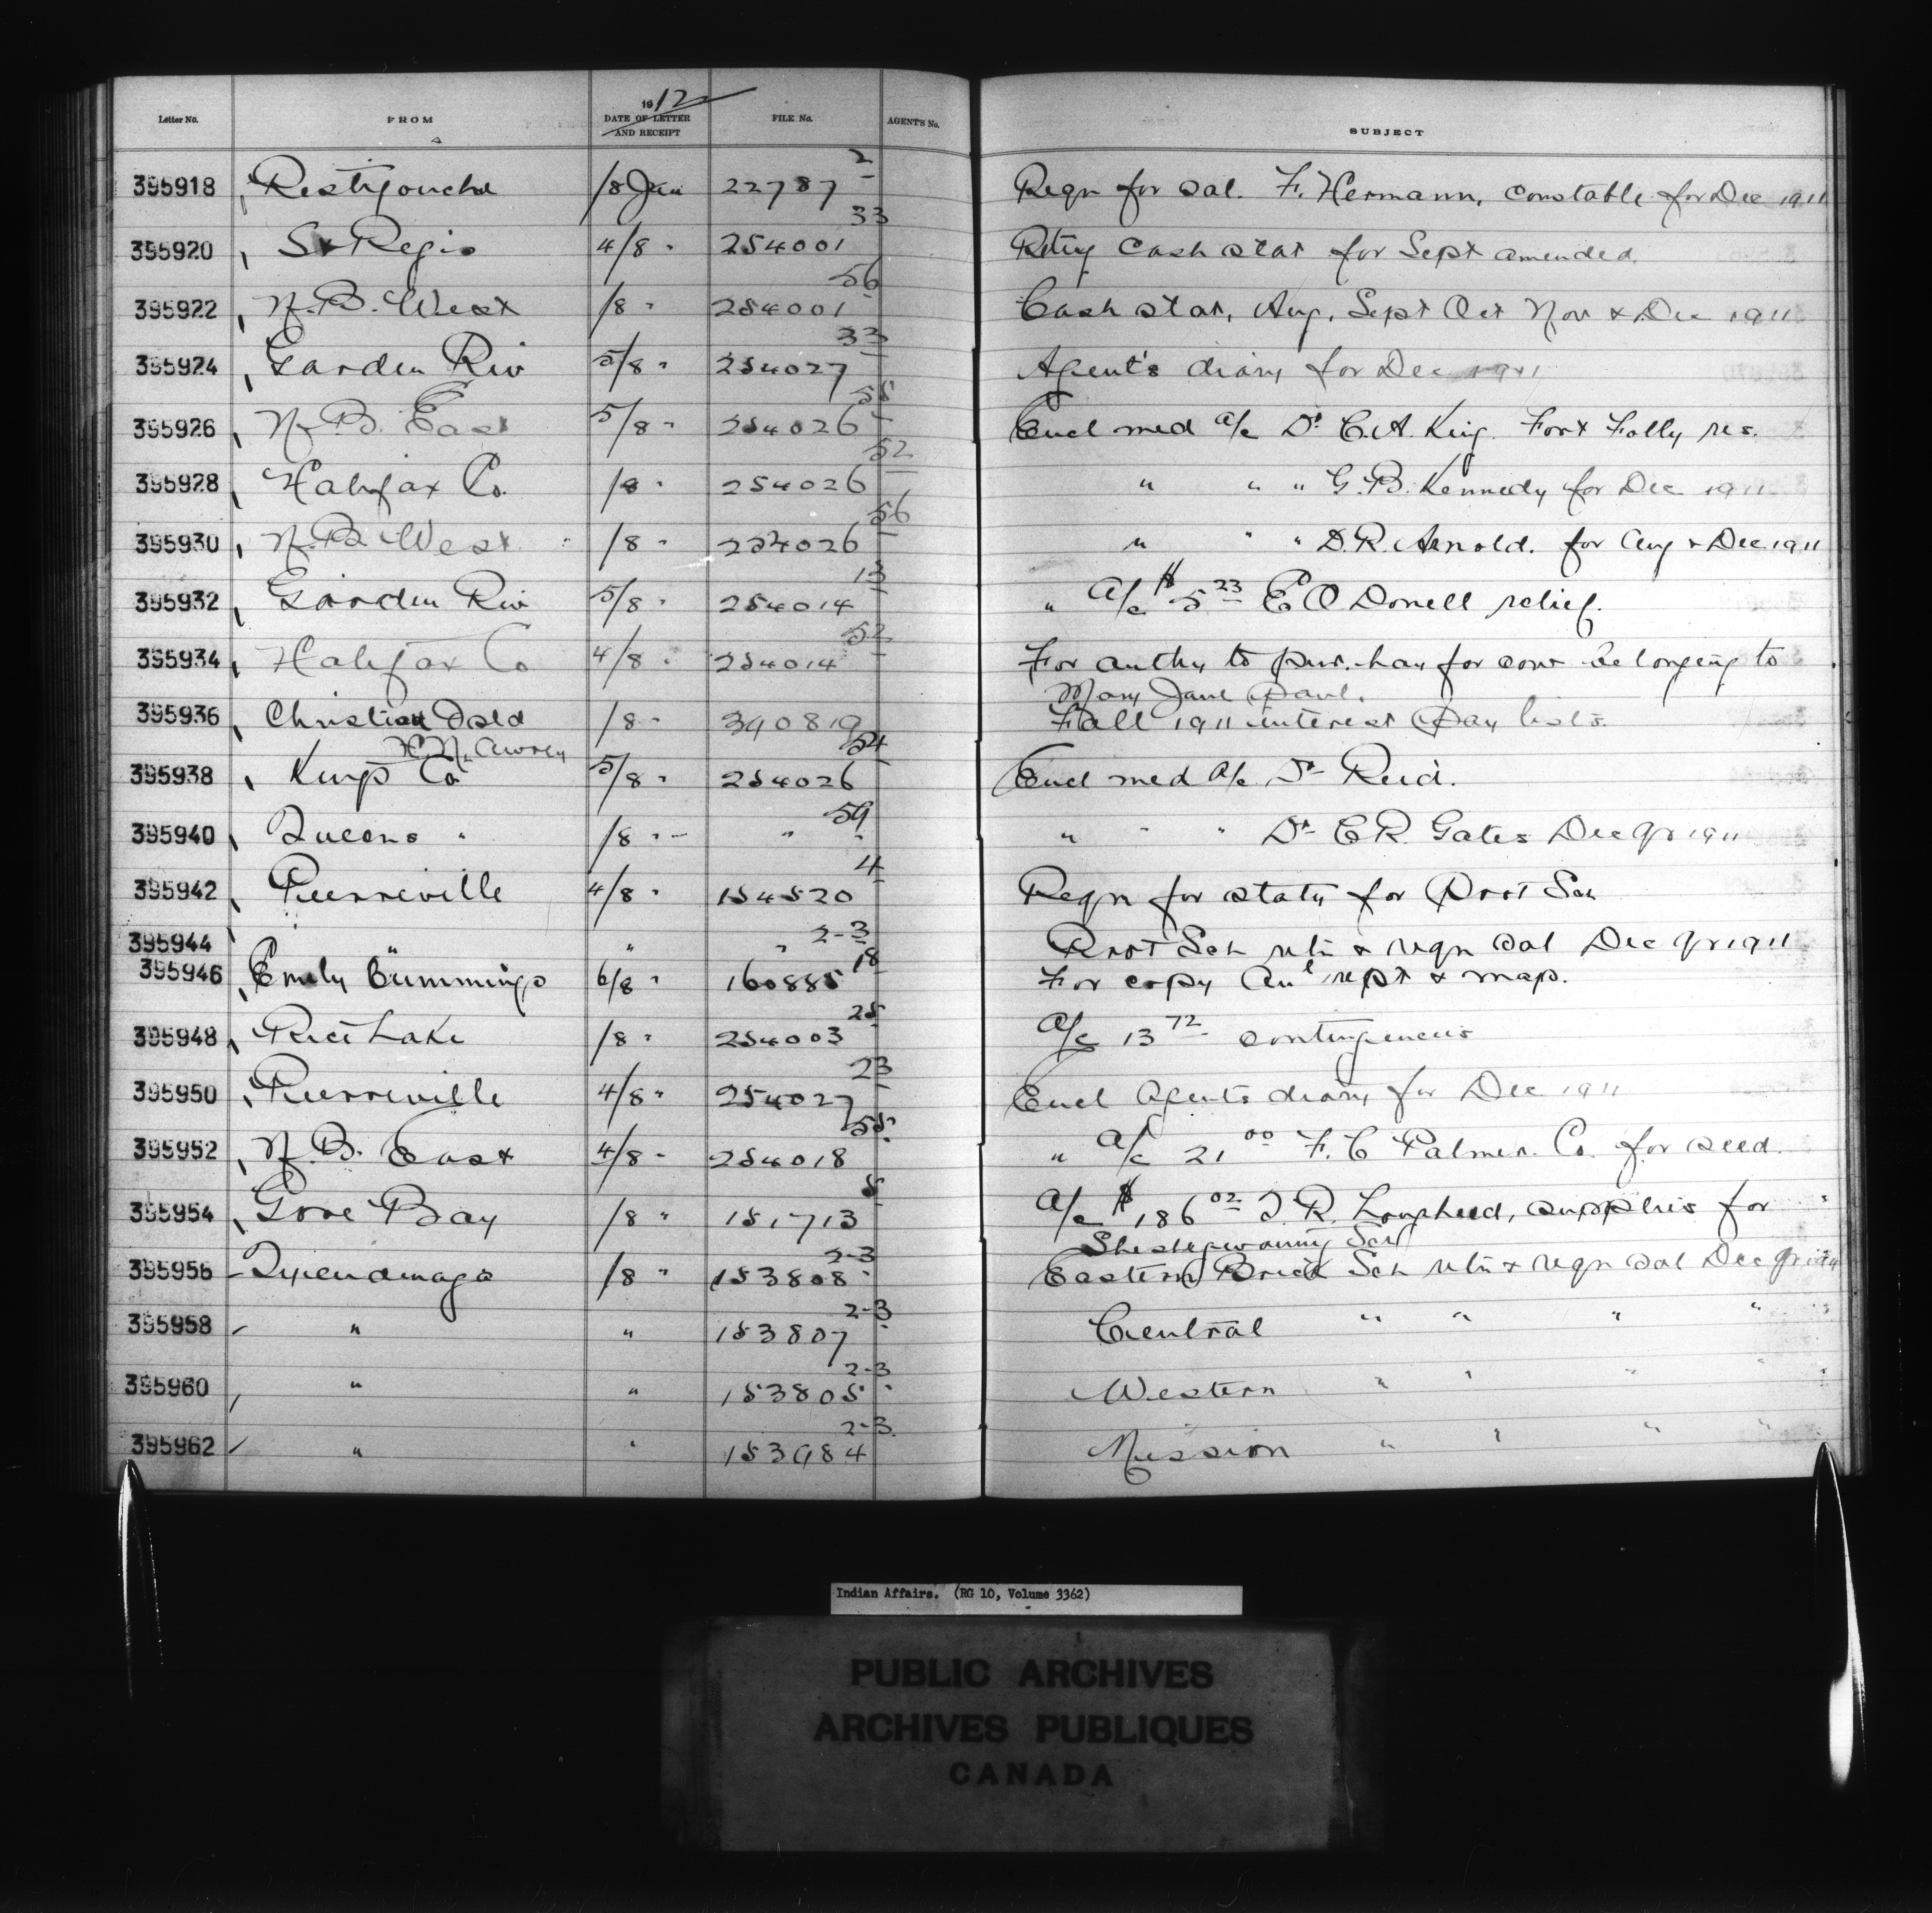 Letter No. FROM 1912 DATE OF LETTER AND RECEIPT FILE No. AGENT'S No. SUBJECT
395918 Restigouche /8 Jan 22787 2 Reqn for sal. F. Hermann, constable for Dec 1911
395920 St Regis 4/8 " 254001 33 Retng Cash stat for Sept amended.
395922 N.B. West /8 " 254001 56 Cash stat, Aug, Sept Oct Nov & Dec 1911
395924 Garden Riv 5/8 " 254027 33 Agent's diary for Dec 1911
395926 N.B. East 5/8 " 254026 55 Encl med a/c Dr C.A. King. Fort Folly res.
395928 Halifax Co. /8 " 254026 52 " " " G.B. Kennedy for Dec 1911
395930 N.B. West /8 " 254026 56 " " " D.R. Arnold. for Aug & Dec 1911
395932 Garden Riv 5/8 " 254014 13 " a/c $5 23 E O Donell relief.
395934 Halifax Co 4/8 " 254014 52 For authy to pur. hay for cow belonging to
Mary Jane Paul.
395936 Christian Dold /8 " 390819 Fall 1911 interest Pay lists.
H.N. Awrey
395938 Kings Co 5/8 " 254026 54 Encl med a/c Dr Reid.
395940 Queens " /8 " " 59 " " " Dr C R. Gates Dec qr 1911
395942 Pierreville 4/8 " 154520 4 Reqn for staty for Prot Sch
395944 " " " 2-3 Prot Sch retn & reqn sal Dec qr 1911
395946 Emily Cummings 6/8 " 160885 18 For copy Anl rept & map.
395948 Rice Lake /8 " 254003 25 a/c 13 72 contingencies
395950 Pierreville 4/8 " 254027 23 Encl Agents diary for Dec 1911
395952 N.B. East 4/8 " 254018 55 " a/c 21 00 F. C Palmer. Co. for seed.
395954 Gore Bay /8 " 151713 5 a/c $186 02 J. R. Lougheed, supplies for
Sheshegwaning Sch
395956 Tyendinaga /8 " 153808 2-3 Eastern Brick Sch retn & reqn sal Dec qr 1911
395958 " " 153807 2-3 Central " " " "
395960 " " 153805 2-3 Western " " " "
395962 " " 153984 2-3 Mission " " " "
Indian Affairs. (RG 10, Volume 3362)
PUBLIC ARCHIVES
ARCHIVES PUBLIQUES
CANADA